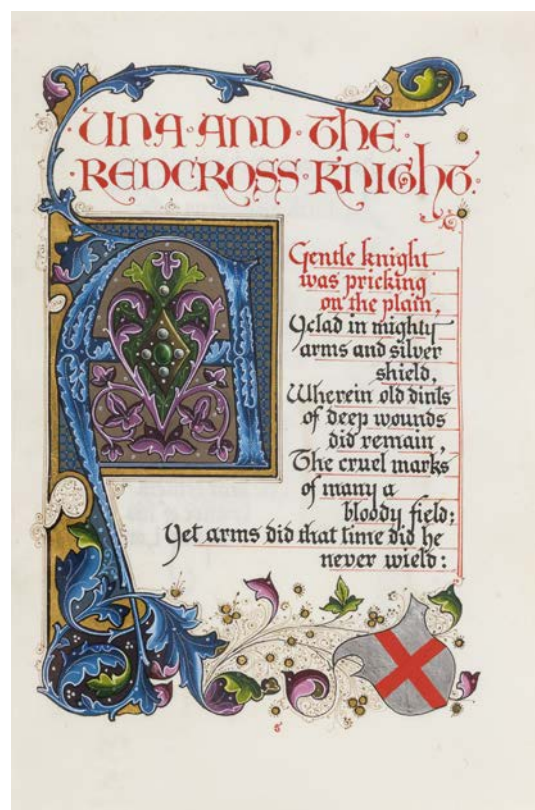 UNA·AND·THE·
·REDCROSS·KNIGHT·
A
Gentle knight
was pricking
on the plain,
Yclad in mighty
arms and silver
shield,
Wherein old dints
of deep wounds
did remain,
The cruel marks
of many a
bloody field;
Yet arms did that time did he
never wield: